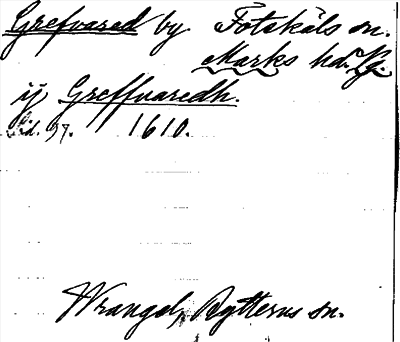 Grefvared by Fotskäls sn.
Marks hd. Vg.
ij Greffvaredh.
97. 1610.
Wrangel, Rytterns sn.